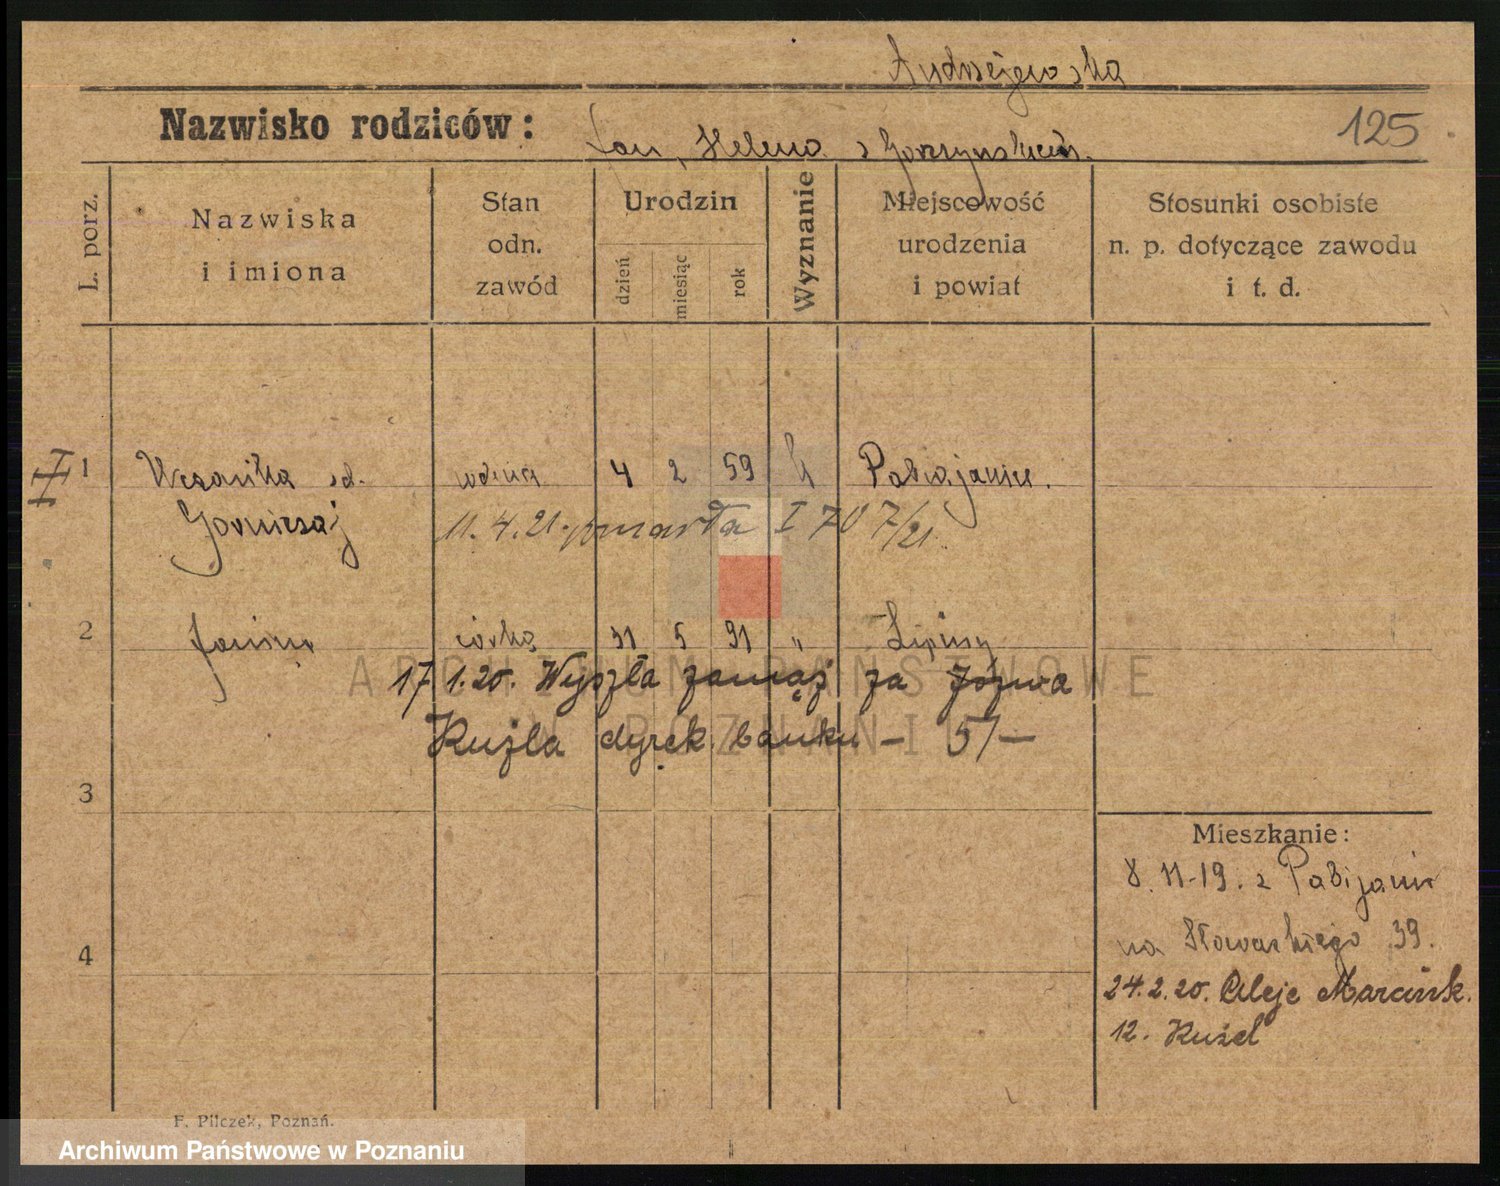 Andrzejewska
Nazwisko rodziców: Jan, Helena z
125
L. porz.
Nazwiska
i imiona
Stan
odn.
zawód
Urodzin
dzień
miesiąc
rok
Wyznanie
Miejscowość
urodzenia
i powiat
Stosunki osobiste
n. p. dotyczące zawodu
i t. d.
1
wdowa 4 2 59 k Pabijanice.
11.4.21. zmarła I 707/21
2 Janina córka 31 5 91 „ Lipiny
17.1.20. Wyszła zamąż za Józefa
Kużla dyrek. banku – 51 –
3
4
Mieszkanie:
8.11-19. z Pabijanic
na Słowackiego 39.
24.2.20. Aleje Marcink.
12. Kużel
F. Pilczek, Poznań.
ARCHIWUM PAŃSTWOWE
W POZNANIU
Archiwum Państwowe w Poznaniu